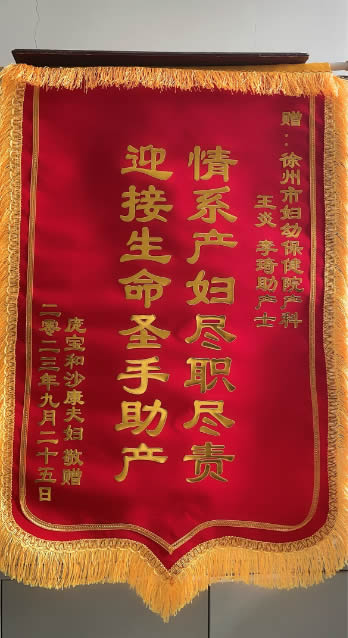 赠：徐州市妇幼保健院产科
王炎 李琦助产士
情系产妇尽职尽责
迎接生命圣手助产
庞宝和沙康夫妇 敬赠
二零二三年九月二十五日